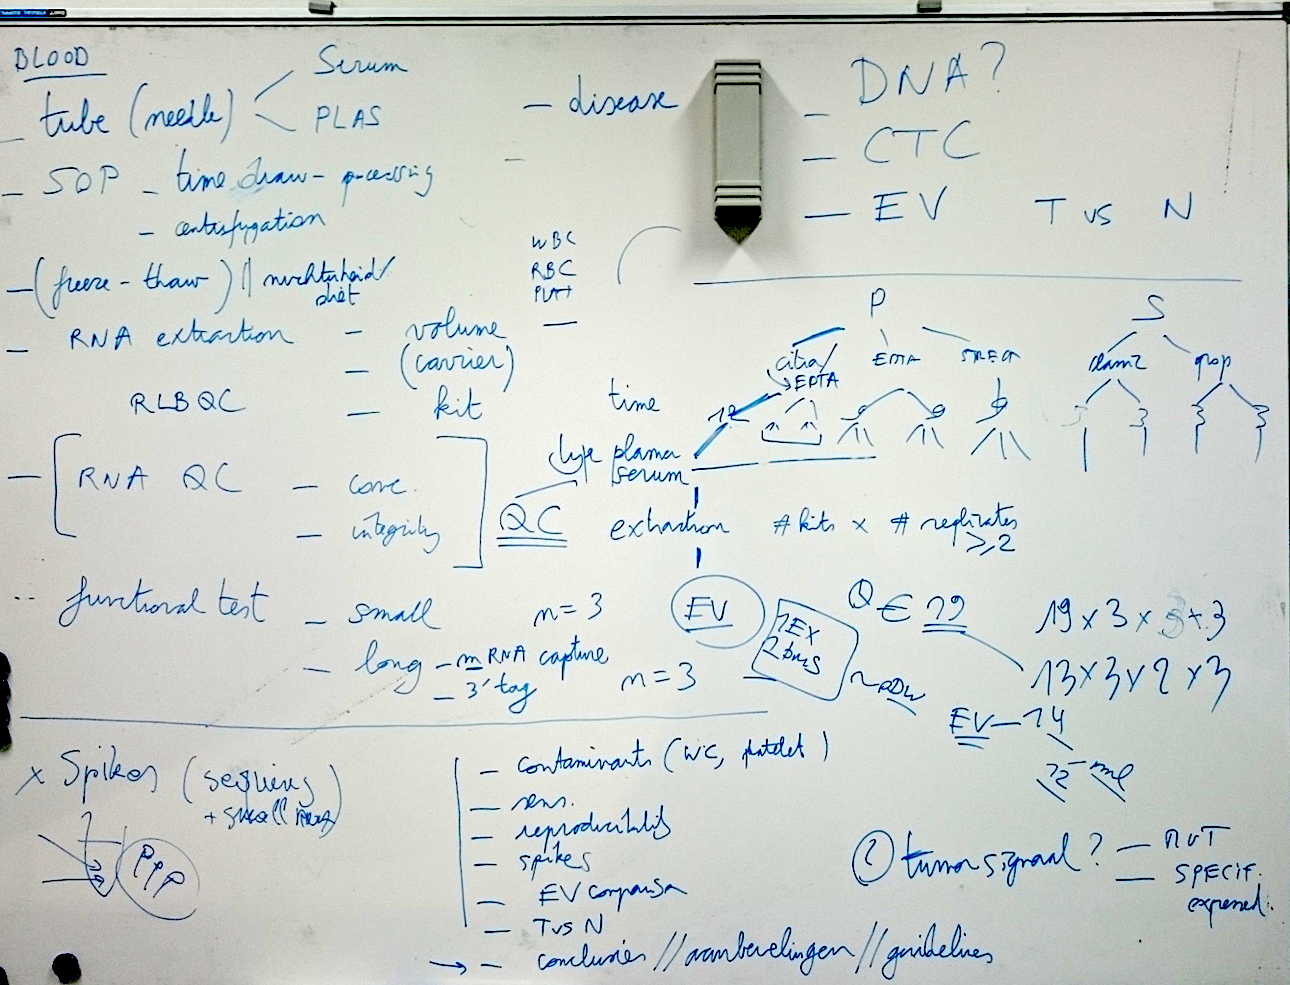 BLOOD
- tube (needle) Serum
PLAS
- SOP - time draw - processing
- centrifugation
- (freeze - thaw) // nuchterheid/
diet
- RNA extraction - volume
- (carrier)
RLBQC - kit
- [RNA QC - conc.
- integrity]
functional test - small n=3
- long - mRNA capture
- 3' tag n=3
x Spikes (sequins)
+ small RNA
PPP
- disease
WBC
RBC
PLAT
-
- DNA?
- CTC
- EV T vs N
P S
citra/ EDTA STRECK
EDTA
time
type plasma
serum
QC
extraction # kits x # replicates
≥2
EV
2 EX
Q € 19
19 x 3 x 3 + 3
13 x 3 x 2 x 3
EV - 14
- contaminants (WC, platelet)
- sens.
- reproducibility
- spikes
- EV comparison
- T vs N
→ - conclusies // aanbevelingen // guidelines
② tumor signaal? - MUT
- SPECIF.
expressed.